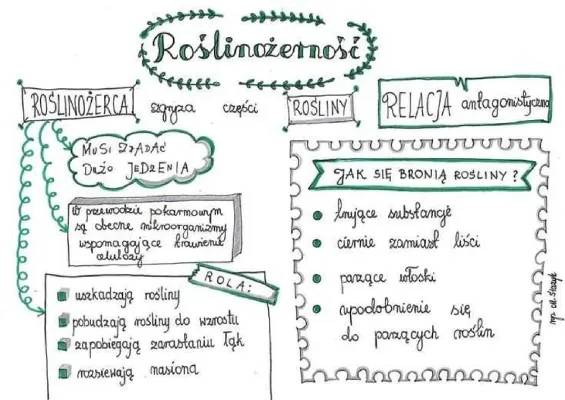 Roślinożerność
ROŚLINOŻERCA zgryza części ROŚLINY
RELACJA antagonistyczna
MUSI ZJADAĆ
DUŻO JEDZENIA
W przewodzie pokarmowym
są obecne mikroorganizmy
wspomagające trawienie
celulozy
ROLA:
uszkadzają rośliny
pobudzają rośliny do wzrostu
zapobiegają zarastaniu łąk
rozsiewają nasiona
JAK SIĘ BRONIĄ ROŚLINY?
trujące substancje
ciernie zamiast liści
parzące włoski
upodobnienie się
do parzących roślin